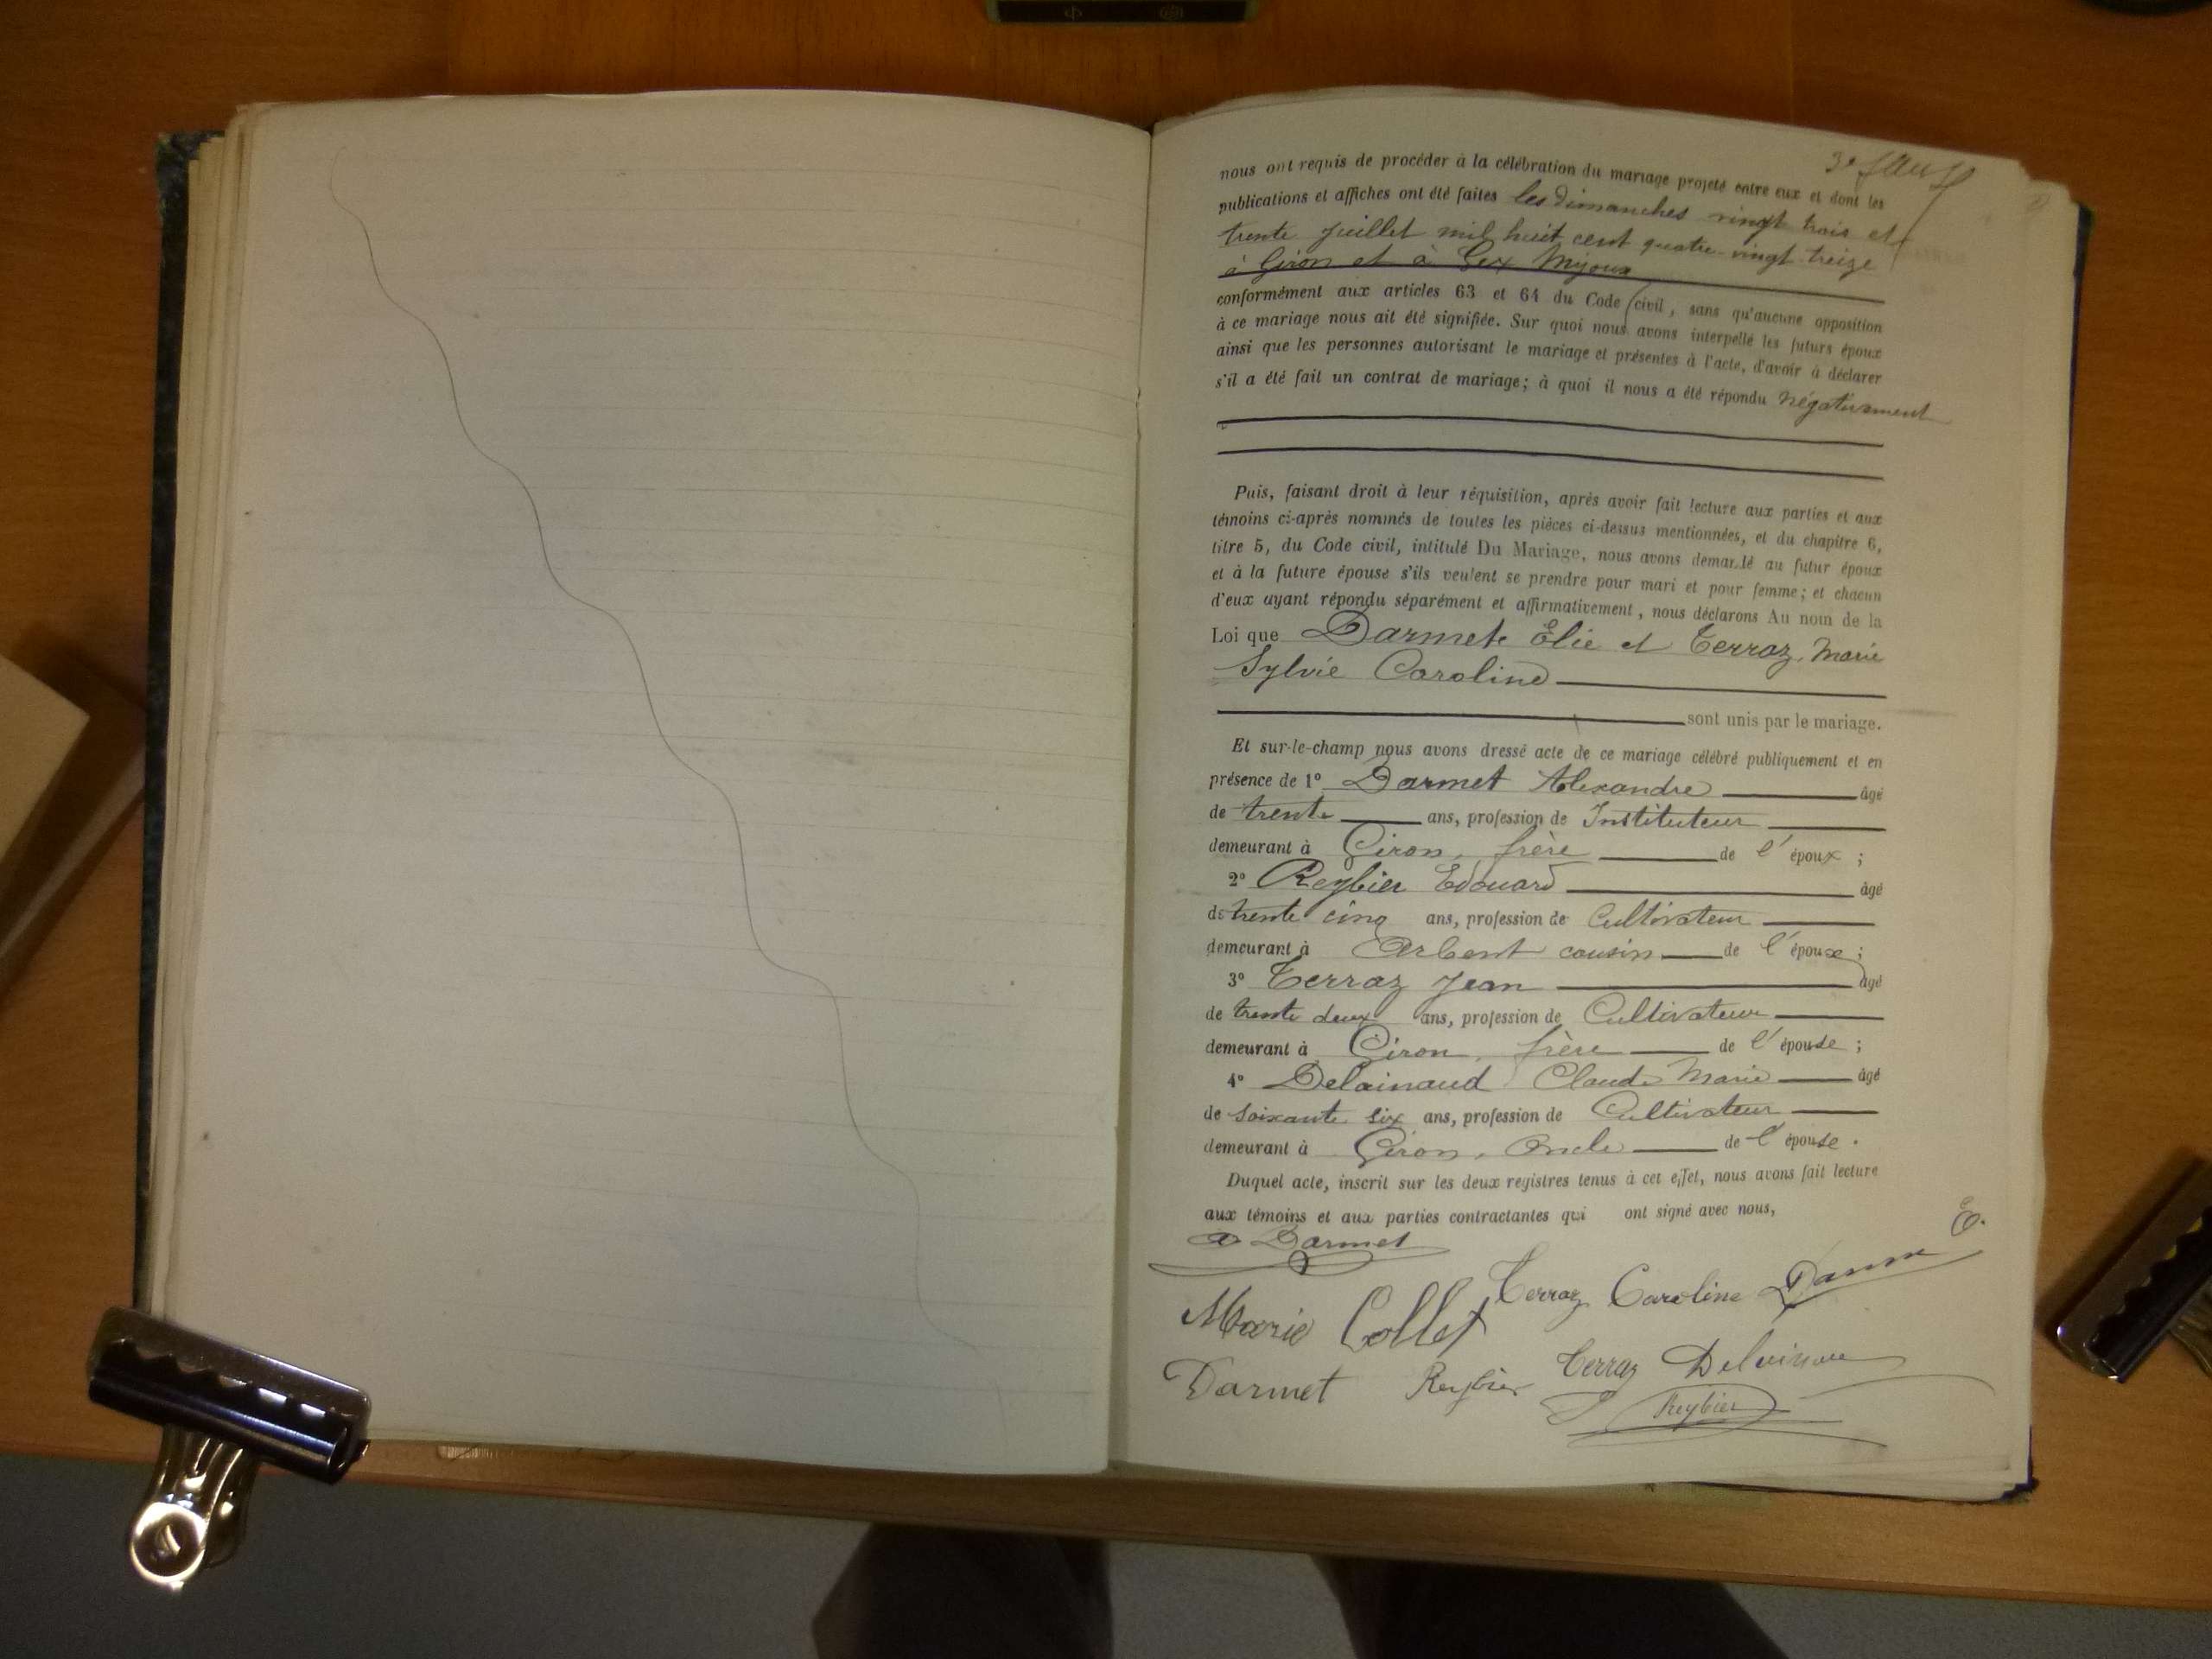 nous ont requis de procéder à la célébration du mariage projeté entre eux et dont les
publications et affiches ont été faites les dimanches vingt trois et
trente juillet mil huit cent quatre-vingt-treize
à Giron et à Gex Mijoux
conformément aux articles 63 et 64 du Code civil, sans qu'aucune opposition
à ce mariage nous ait été signifiée. Sur quoi nous avons interpellé les futurs époux
ainsi que les personnes autorisant le mariage et présentes à l'acte, d'avoir à déclarer
s'il a été fait un contrat de mariage; à quoi il nous a été répondu négativement
Puis, faisant droit à leur réquisition, après avoir fait lecture aux parties et aux
témoins ci-après nommés de toutes les pièces ci-dessus mentionnées, et du chapitre 6,
titre 5, du Code civil, intitulé Du Mariage, nous avons demandé au futur époux
et à la future épouse s'ils veulent se prendre pour mari et pour femme; et chacun
d'eux ayant répondu séparément et affirmativement, nous déclarons Au nom de la
Loi que Darmet Elie et Terraz, Marie
Sylvie Caroline
sont unis par le mariage.
Et sur-le-champ nous avons dressé acte de ce mariage célébré publiquement et en
présence de 1° Darmet Alexandre âgé
de trente ans, profession de Instituteur
demeurant à Giron, frère de l'époux;
2° Reybier Edouard âgé
de trente cinq ans, profession de Cultivateur
demeurant à Arbent cousin de l'époux;
3° Terraz Jean âgé
de trente deux ans, profession de Cultivateur
demeurant à Giron, frère de l'épouse;
4° Delainaud Claude Marie âgé
de soixante six ans, profession de Cultivateur
demeurant à Giron, Oncle de l'épouse.
Duquel acte, inscrit sur les deux registres tenus à cet effet, nous avons fait lecture
aux témoins et aux parties contractantes qui ont signé avec nous,
A Darmet
Terraz Caroline Darmet E.
Marie Collet
Terraz
Darmet Reybier
Reybier